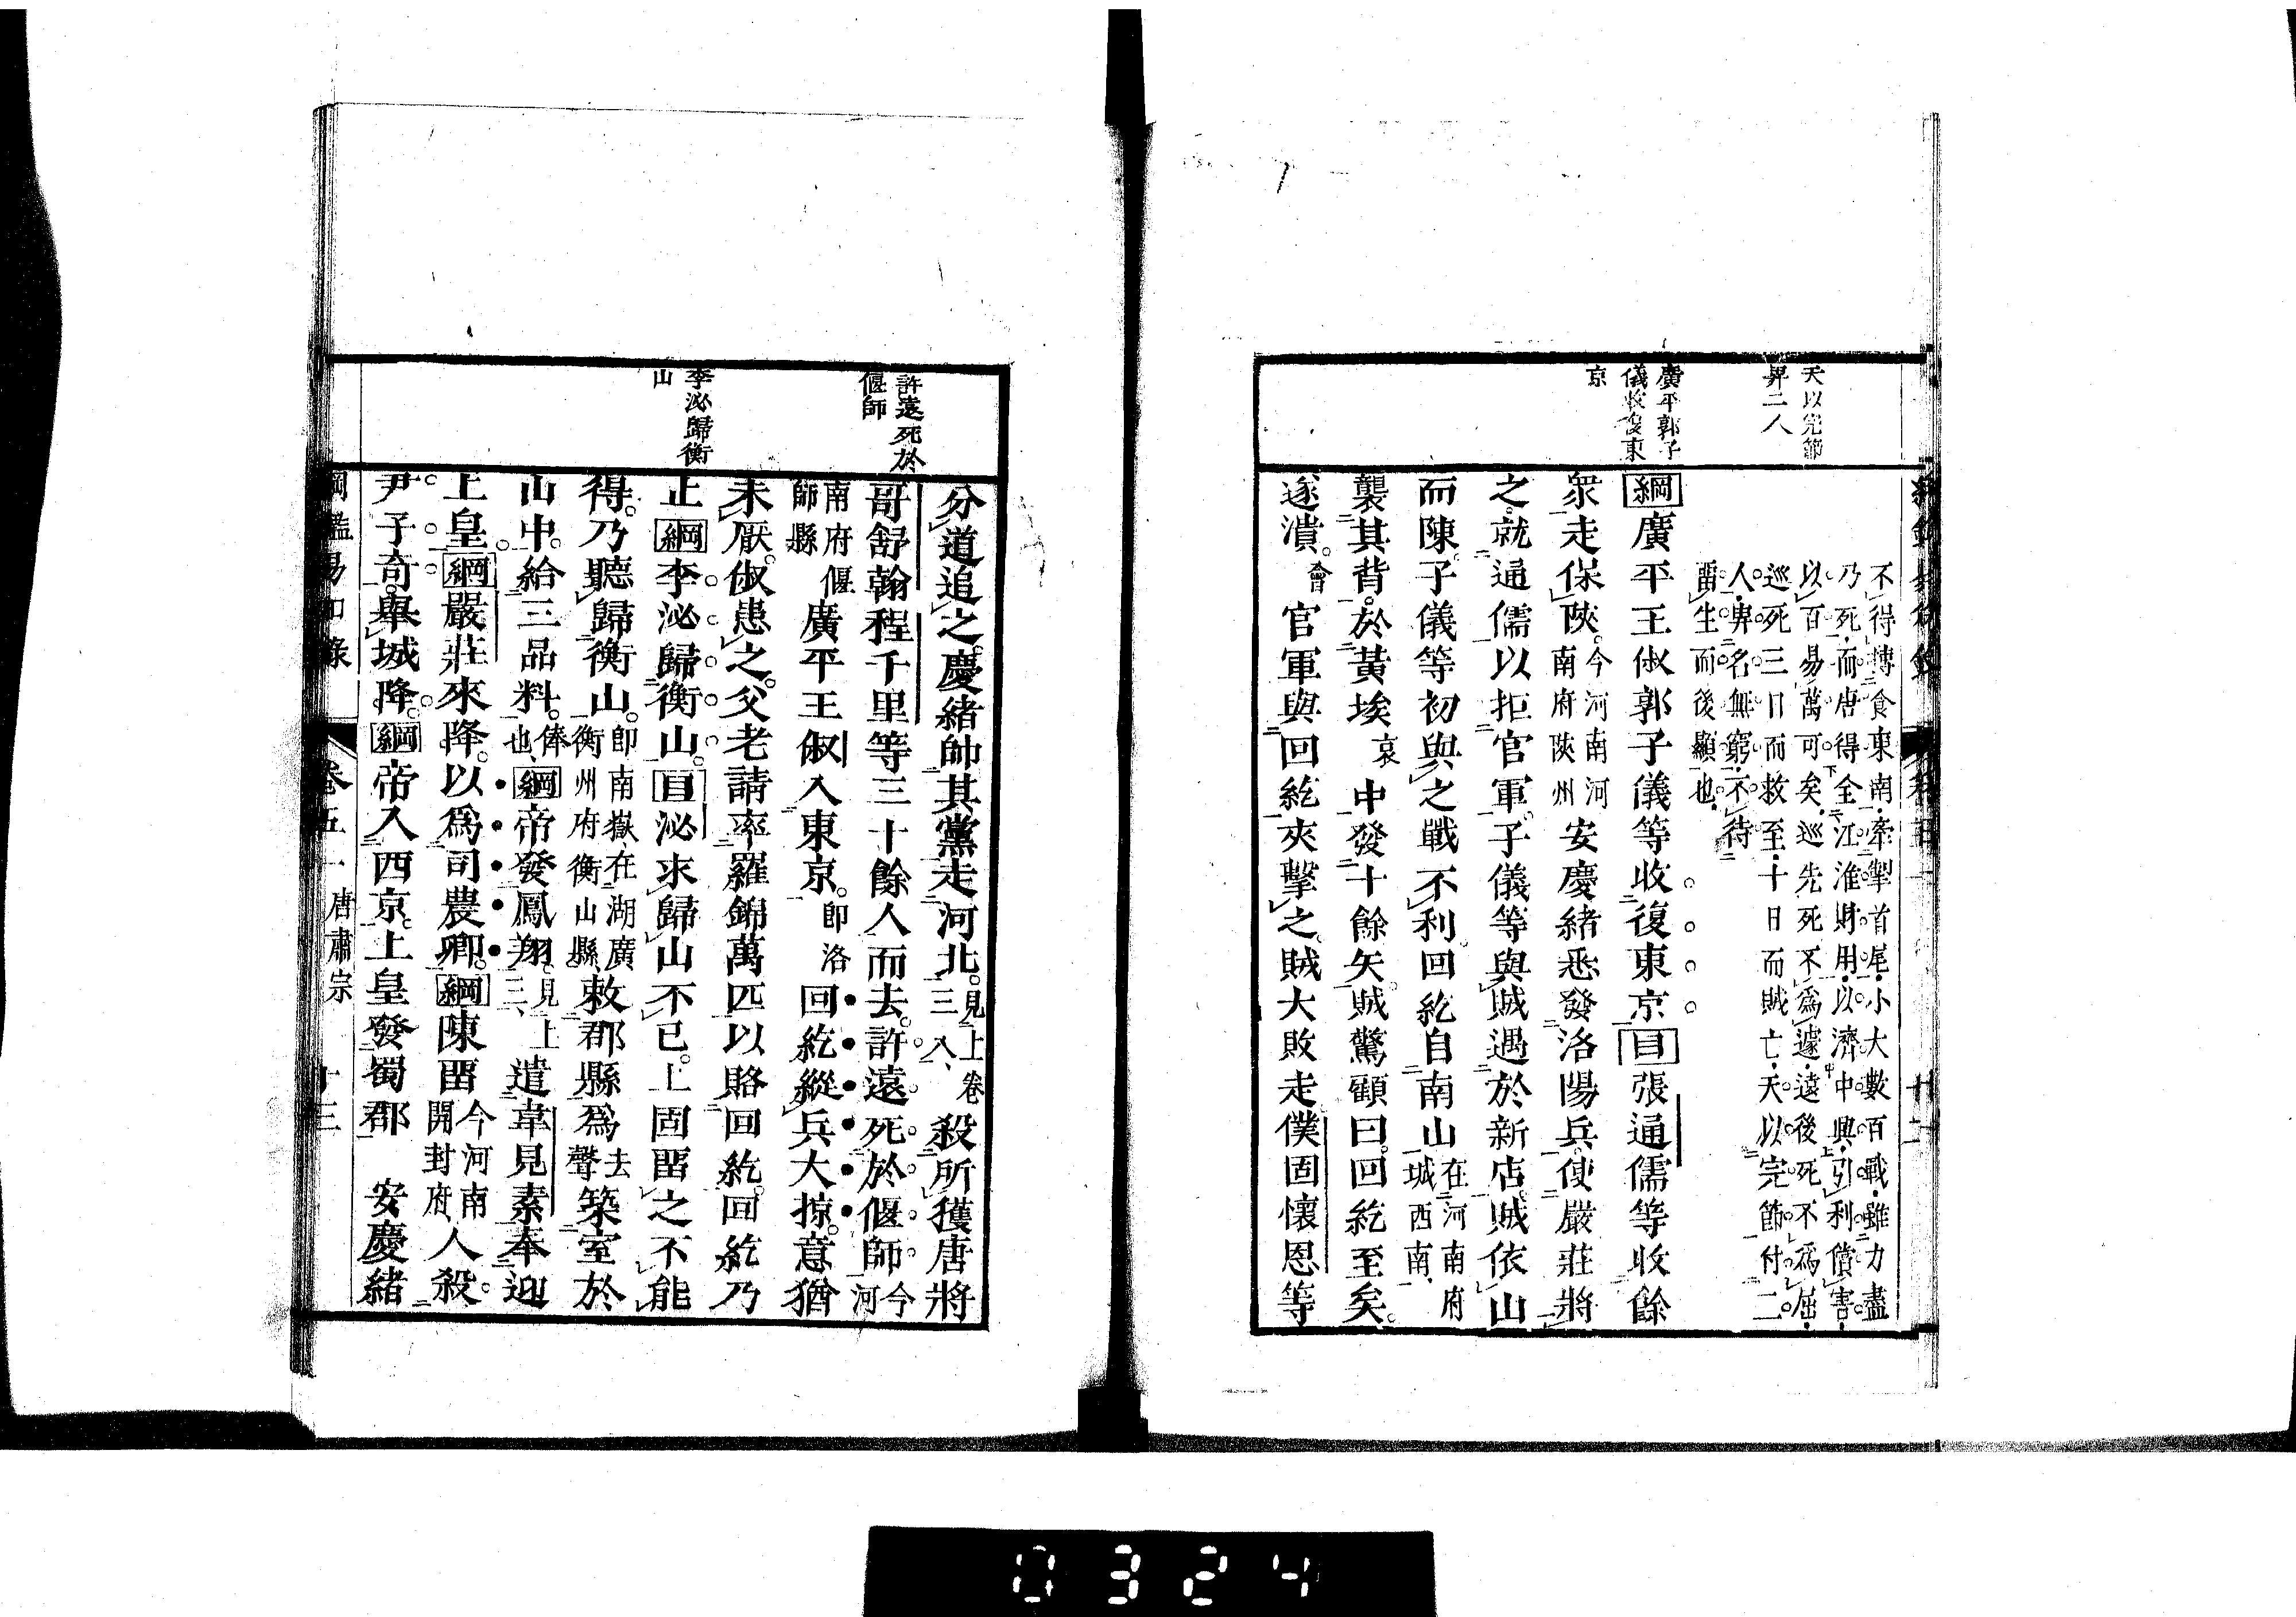 天以完節
畀二人
廣平郭子
儀收復東
京
不得摶食東南牽掣首尾小大數百戰雖力盡
乃死而唐得全江淮財用以濟中興引利償害
以百易萬可矣巡先死不爲遽遠後死不爲屈
巡死三日而救至十日而賊亡天以完節付二
人畀名無窮不待
畱生而後顯也
綱廣平王俶郭子儀等收復東京目張通儒等收餘
衆走保陝今河南河南府陝州安慶緒悉發洛陽兵使嚴莊將
之就通儒以拒官軍子儀等與賊遇於新店賊依山
而陳子儀等初與之戰不利回紇自南山在河南府城西南
襲其背於黃埃哀中發十餘矢賊驚顧曰回紇至矣
遂潰會官軍與回紇夾擊之賊大敗走僕固懷恩等
許遠死於
偃師
李泌歸衡
山
分道追之慶緒帥其黨走河北見上卷三入殺所獲唐將
哥舒翰程千里等三十餘人而去許遠死於偃師今河
南府偃師縣廣平王俶入東京即洛回紇縱兵大掠意猶
未厭俶患之父老請率羅錦萬匹以賂回紇回紇乃
止綱李泌歸衡山目泌求歸山不已上固畱之不能
得乃聽歸衡山即南嶽在湖廣衡州府衡山縣敕郡縣爲去聲築室於
山中給三品料俸也綱帝發鳳翔見上三遣韋見素奉迎
上皇綱嚴莊來降以爲司農卿綱陳畱今河南開封府人殺
尹子奇舉城降綱帝入西京上皇發蜀郡 安慶緒
綱鑑易知錄 卷五一 唐肅宗 十三
0324